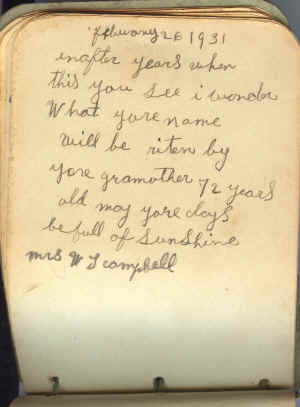 february 26 1931
inafter years when
this you see i wonder
What yore name
will be riten by
yore gramother 72 years
old may yore days
be full of sunshine
mrs W S campbell